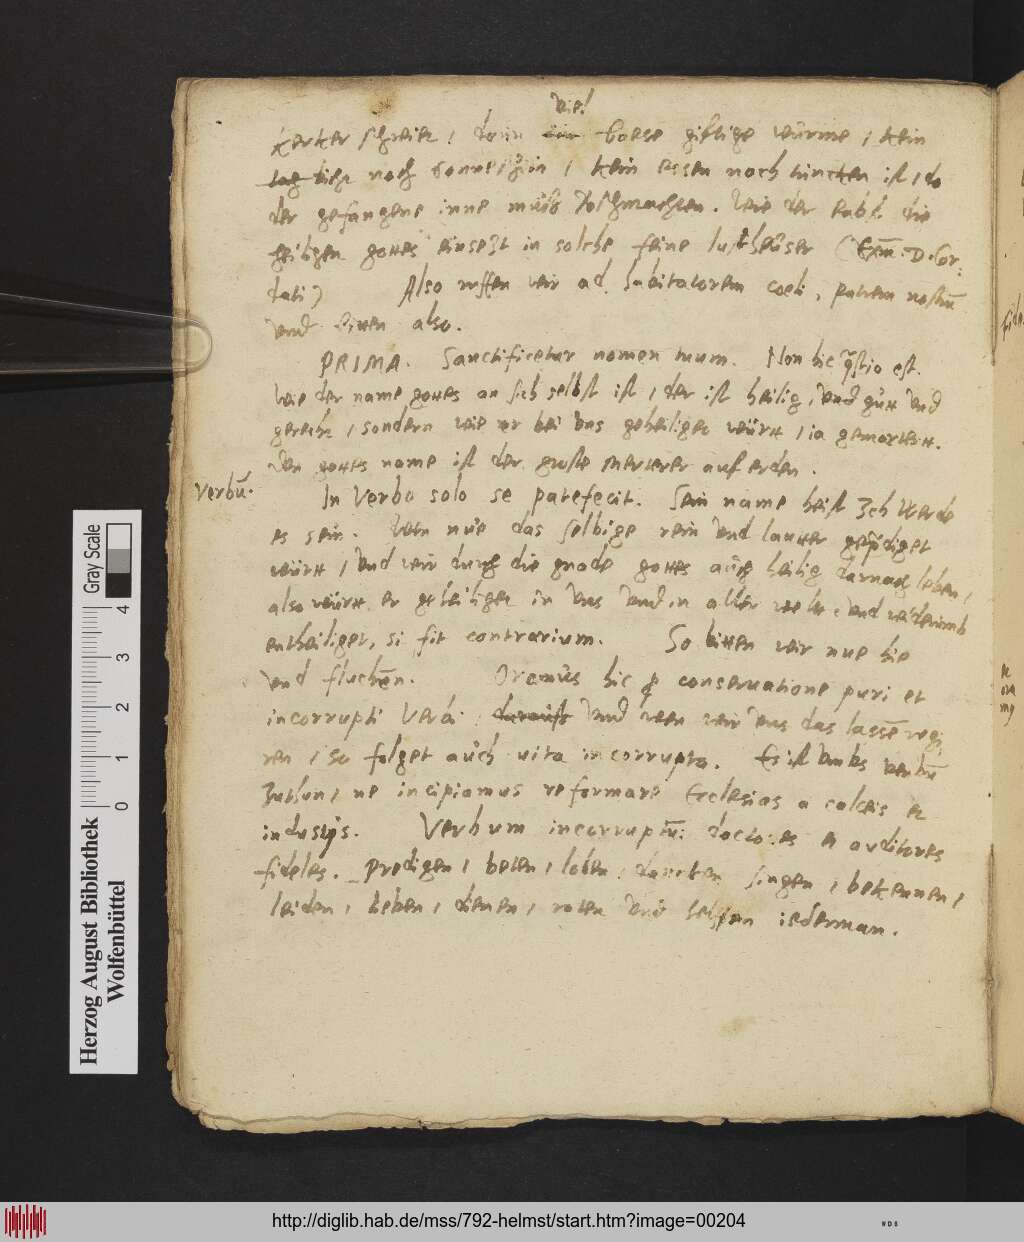 viel
kerker schreiet / darin boese gifftige würme / kein
tag liecht noch sonneschein / kein essen noch trincken ist / do
der gefangene inne muß verschmachten. Wie der Babst die
heiligen gottes einsezt in solche feine lustheuser (Exm. D. Cor-
dati) Also ruffen wir ad habitatorem coeli, patrem nostrū
vnd bitten also.
PRIMA. Sanctificetur nomen tuum. Non hic qstio est.
Wie der name gottes an sich selbst ist / der ist heilig, vnd gutt vnd
gerecht / sondern wie er bei vns geheiliget württ / ia gemartertt.
Den gottes name ist der groste merterer auf erden.
Verbū.
In Verbo solo se patefecit. Sein name heist Ich werde
es sein. Wen nue das selbige rein vnd lautter gepdiget
württ / vnd wir durch die gnade gottes auch heilig darnach leben /
also württ er geheiliget in vns vnd in aller welt : vnd widerumb
entheiliget, si fit contrarium. So bitten wir nue hie
vnd fluchen. Oramus hic p conseruatione puri et
incorrupti Verbi, darauß vnd wen wir vns das lassē regi
ren / so folget auch vita incorrupta. Es ist vmbs verbū
zuthun / ne incipiamus reformare Ecclesias a calceis et
indusijs. Verbum incorruptū: doctores et auditores
fideles. predigen / beten / loben / dancken singen / bekennen /
leiden / geben / dienen / raten vnd helffen iederman.
Gray Scale
0 1 2 3 4
Herzog August Bibliothek
Wolfenbüttel
http://diglib.hab.de/mss/792-helmst/start.htm?image=00204